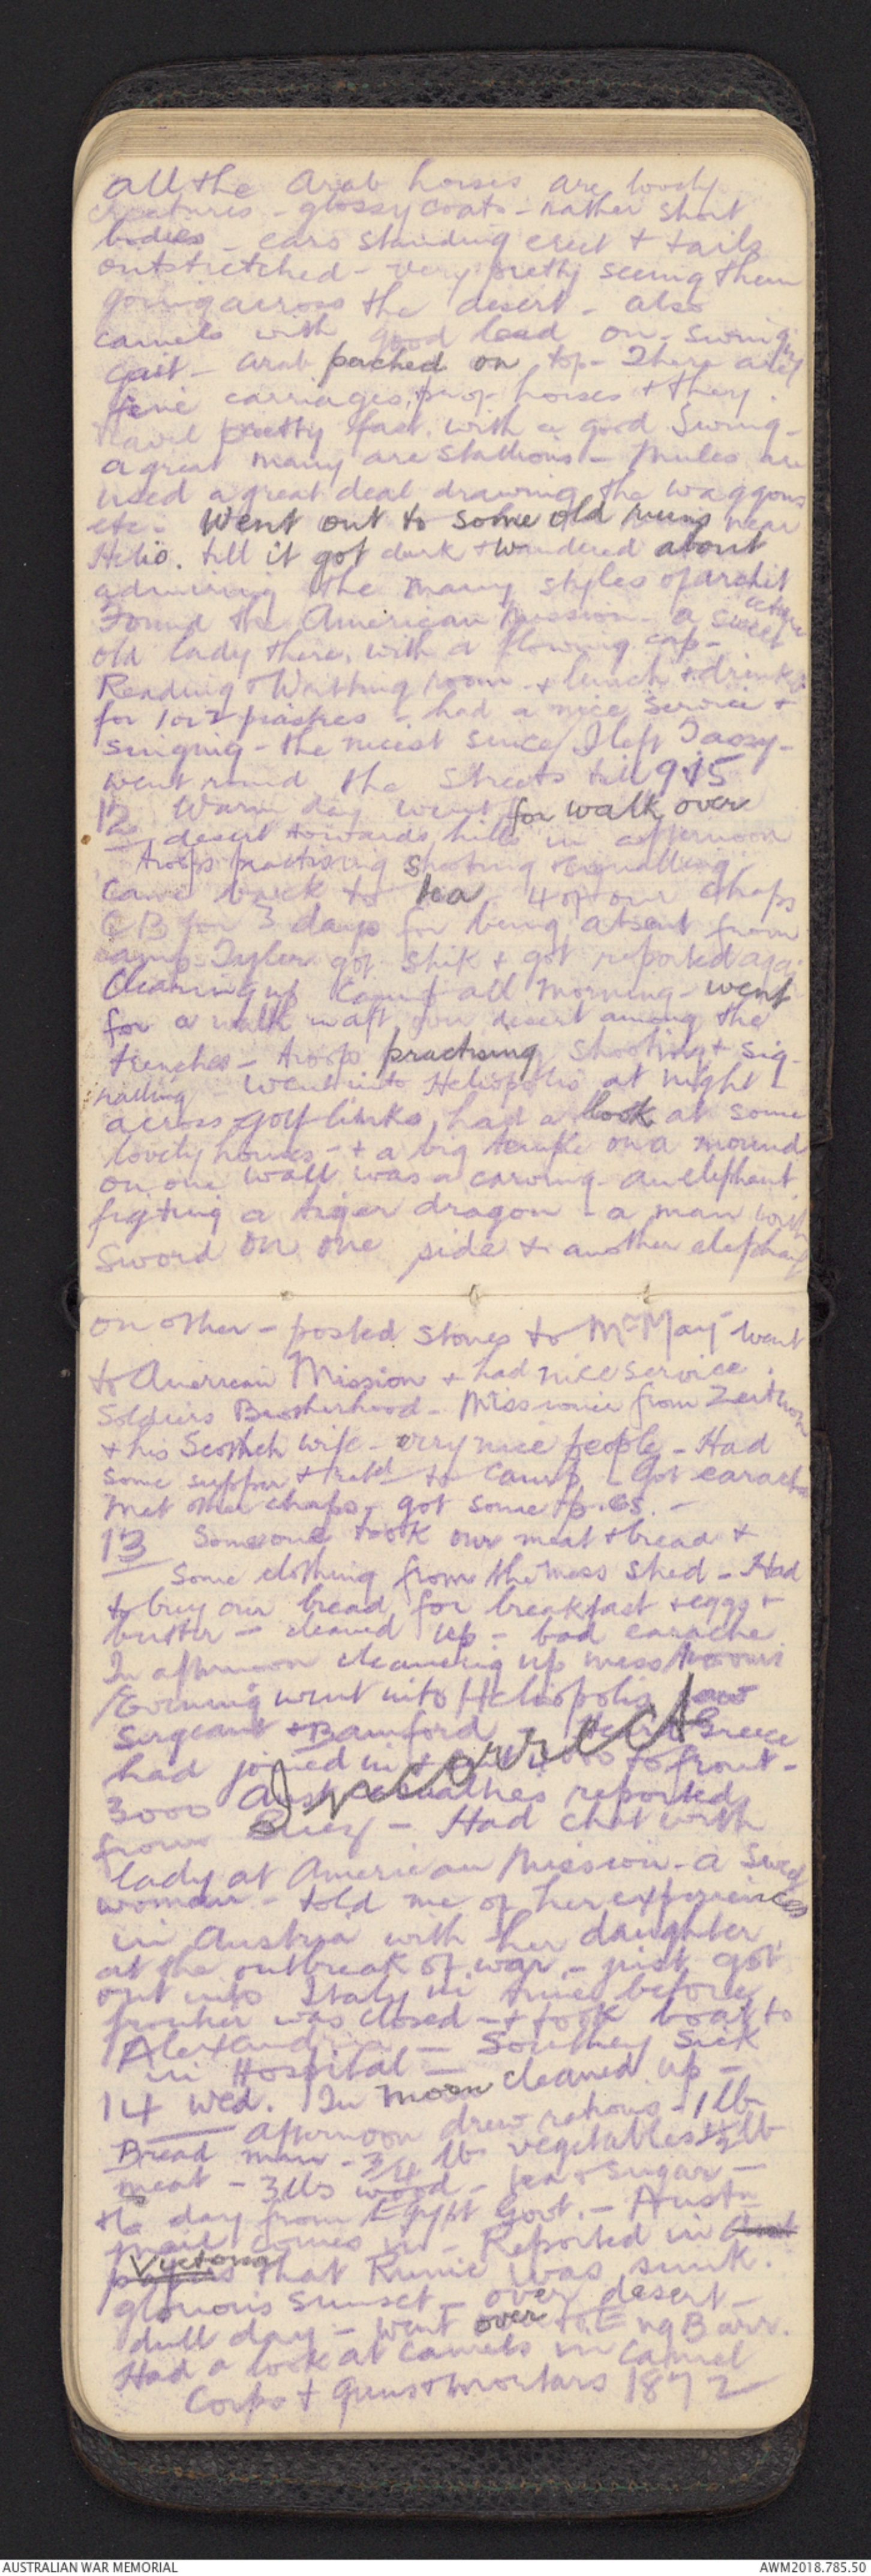 all the Arab horses are lovely
creatures - glossy coats - rather short
bodies - ears standing erect & tails
outstretched - very pretty seeing them
going across the desert - also
camels with good load on - swingy
gait - Arab perched on top - There are
fine carriages, prop horses & they
travel pretty fast with a good swing -
a great many are stallions - Mules are
used a great deal drawing the waggons
etc - Went out to some old ruins near
Helio. till it got dark & wandered about
admiring the many styles of archit
ecture
Found the American Mission - a sweet
old lady there, with a flowing cap -
Reading & Writing room & lunch & drinks
for 1 or 2 piastres - had a nice service &
singing - the nicest since I left Tassy -
went round the streets till 9.15
12 Warm day went for walk over
desert towards hills in afternoon
troops practising shooting & signalling.
Came back to tea. 4 of our chaps
CB for 3 days for being absent from
camp - Tayler got shik & got reported aga.
Cleaning up Camp all morning - went
for a walk in aft over desert among the
trenches - troops practising shooting & sig-
nalling - Went into Heliopolis at night -
across golf links, had a look at some
lovely houses - & a big temple on a mound
on one wall was a carving - an elephant
figting a tiger dragon - a man with
sword on one side & another elephant
on other - posted stones to Mc May - went
to American Mission & had nice service.
Soldiers Brotherhood - Missionie from Zeitoun
& his Scotch wife - very nice people - Had
some supper & retd to camp - Got earache
met other chaps, got some p.cs. -
13 Someone took our meat & bread &
some clothing from the mess shed - Had
to buy our bread for breakfast & eggs &
butter - cleaned up - bad earache
In afternoon cleaning up mess rooms
Evening went into Heliopolis saw
Sergeant & Bamford - Heard Greece
had joined in & to front -
Incorrect
3000 Aust casualties reported
from Suez - Had chat with
lady at American Mission - a Swed
woman - told me of her experiences
in Austria with her daughter
at the outbreak of war - just got
out into Italy in time before
fronteer was closed - & took boat to
Alexandria - Southey sick
in Hospital -
14 Wed. In morn cleaned up -
afternoon drew rations - 1 lb
Bread man - 3/4 lb vegetables 1/2 lb
meat - 3 lbs wood - tea & sugar -
6 day from Egypt Govt. - Austn
mail comes in - Reported in
Victoria
papers that Runic was sunk.
glorious sunset - over desert -
dull day - went over to Eng Barr.
Had a look at camels in Camel
Corps & guns & mortars 1872
AUSTRALIAN WAR MEMORIAL
AWM2018.785.50